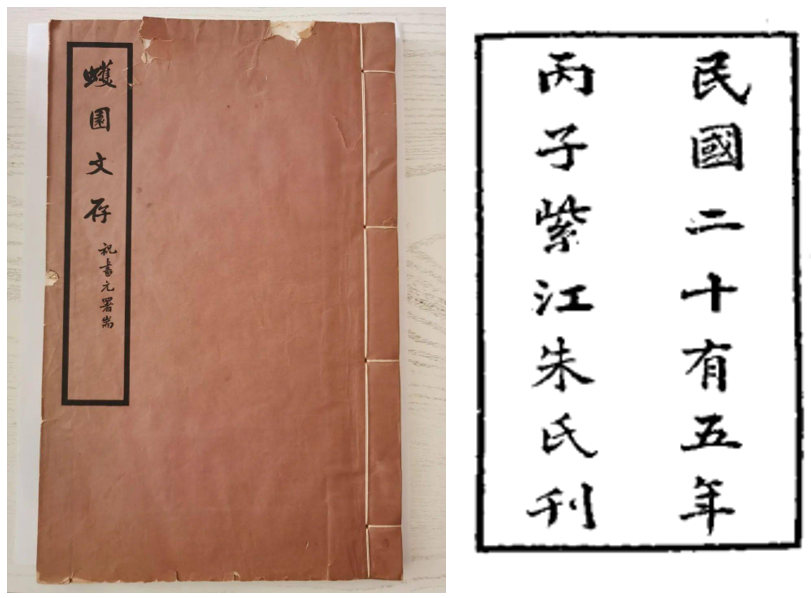 蠖園文存
祝書元署耑
民國二十有五年
丙子紫江朱氏刊